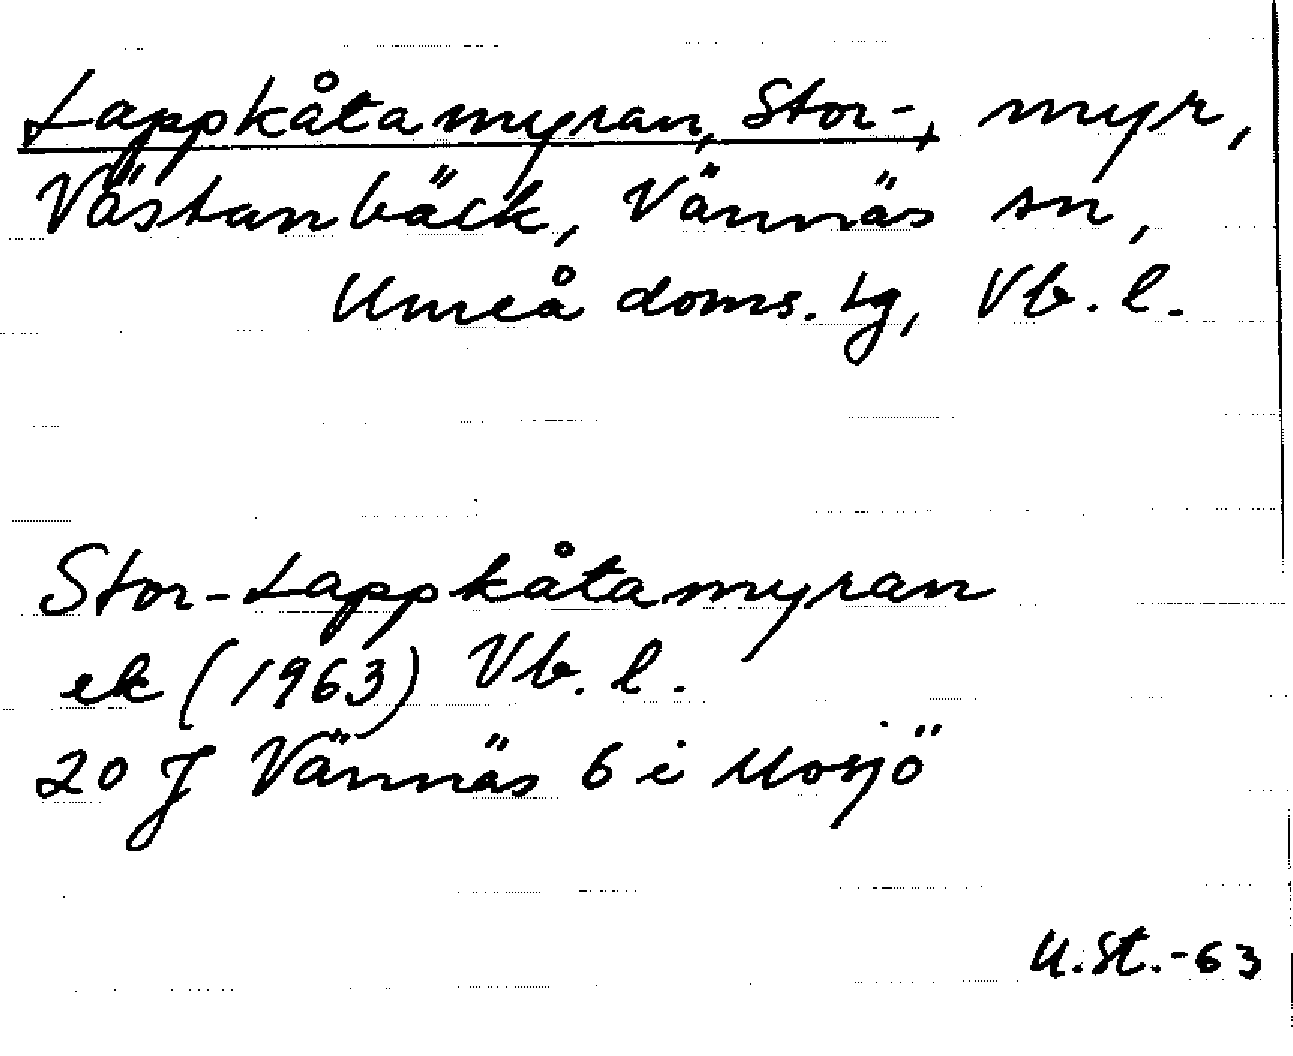 Lappkåtamyran, Stor-, myr,
Västanbäck, Vännäs sn,
Umeå doms. tg, Vb. l.
Stor-Lappkåtamyran
ek (1963) Vb. l.
20 J Vännäs 6 i Mosjö
U.St.-63